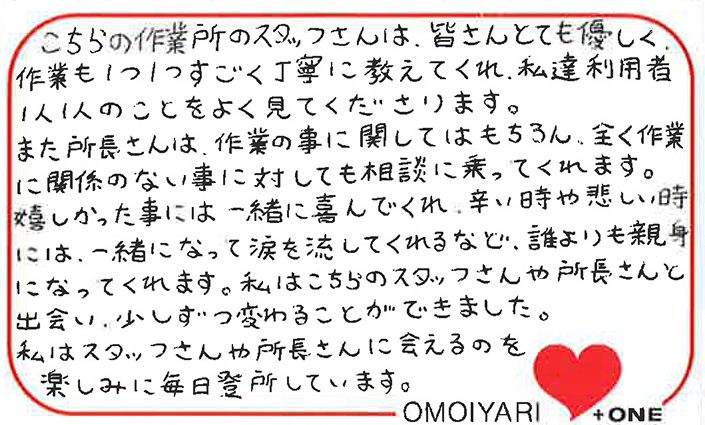 こちらの作業所のスタッフさんは、皆さんとても優しく、
作業も1つ1つすごく丁寧に教えてくれ、私達利用者
1人1人のことをよく見てくださります。
また所長さんは、作業の事に関してはもちろん、全く作業
に関係のない事に対しても相談に乗ってくれます。
嬉しかった事には一緒に喜んでくれ、辛い時や悲しい時
には、一緒になって涙を流してくれるなど、誰よりも親身
になってくれます。私はこちらのスタッフさんや所長さんと
出会い、少しずつ変わることができました。
私はスタッフさんや所長さんに会えるのを
楽しみに毎日登所しています。
OMOIYARI +ONE